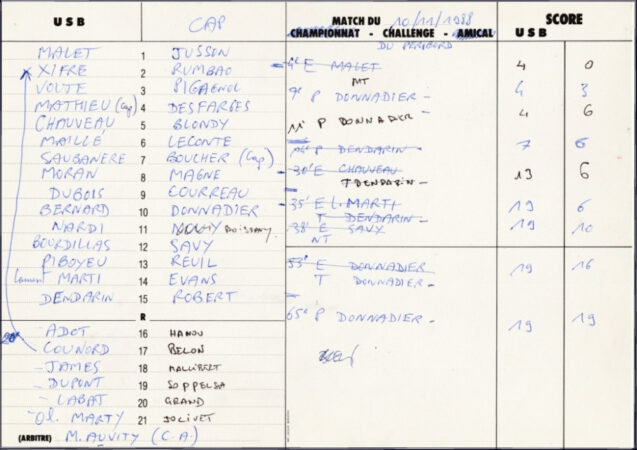 USB CAP MATCH DU 10/11/1988 SCORE
CHAMPIONNAT - CHALLENGE - AMICAL USB
DU PERIGORD
MALET 1 JUSSON
XIFRE 2 RUMBAO
VOLTE 3 PIGAGNOL
MATHIEU (Cap) 4 DESFARGES
CHAUVEAU 5 BLONDY
MAILLÉ 6 LECONTE
SAUBANERE 7 BOUCHER (Cap)
MORAN 8 MAGNE
DUBOIS 9 COURREAU
BERNARD 10 DONNADIER
NARDI 11
BOURDILLAS 12 SAVY
PIBOYEU 13 REUIL
Laurent MARTI 14 EVANS
DENDARIN 15 ROBERT
R
ADOT 16 HANOU
20e COUNORD 17 BELON
- JAMES 18 MALLIBERT
- DUPONT 19 SOPPELSA
- LABAT 20 GRAND
- Ol. MARTY 21 JOLIVET
(ARBITRE) M. AUVITY (C.A)
4e E MALET 4 0
NT
9e P DONNADIER - 4 3
11e P DONNADIER - 4 6
P DENDARIN - 7 6
30e E CHAUVEAU 13 6
T DENDARIN -
35e E L. MARTI 19 6
T DENDARIN -
38e E SAVY 19 10
NT
53e E DONNADIER 19 16
T DONNADIER -
65e P DONNADIER - 19 19